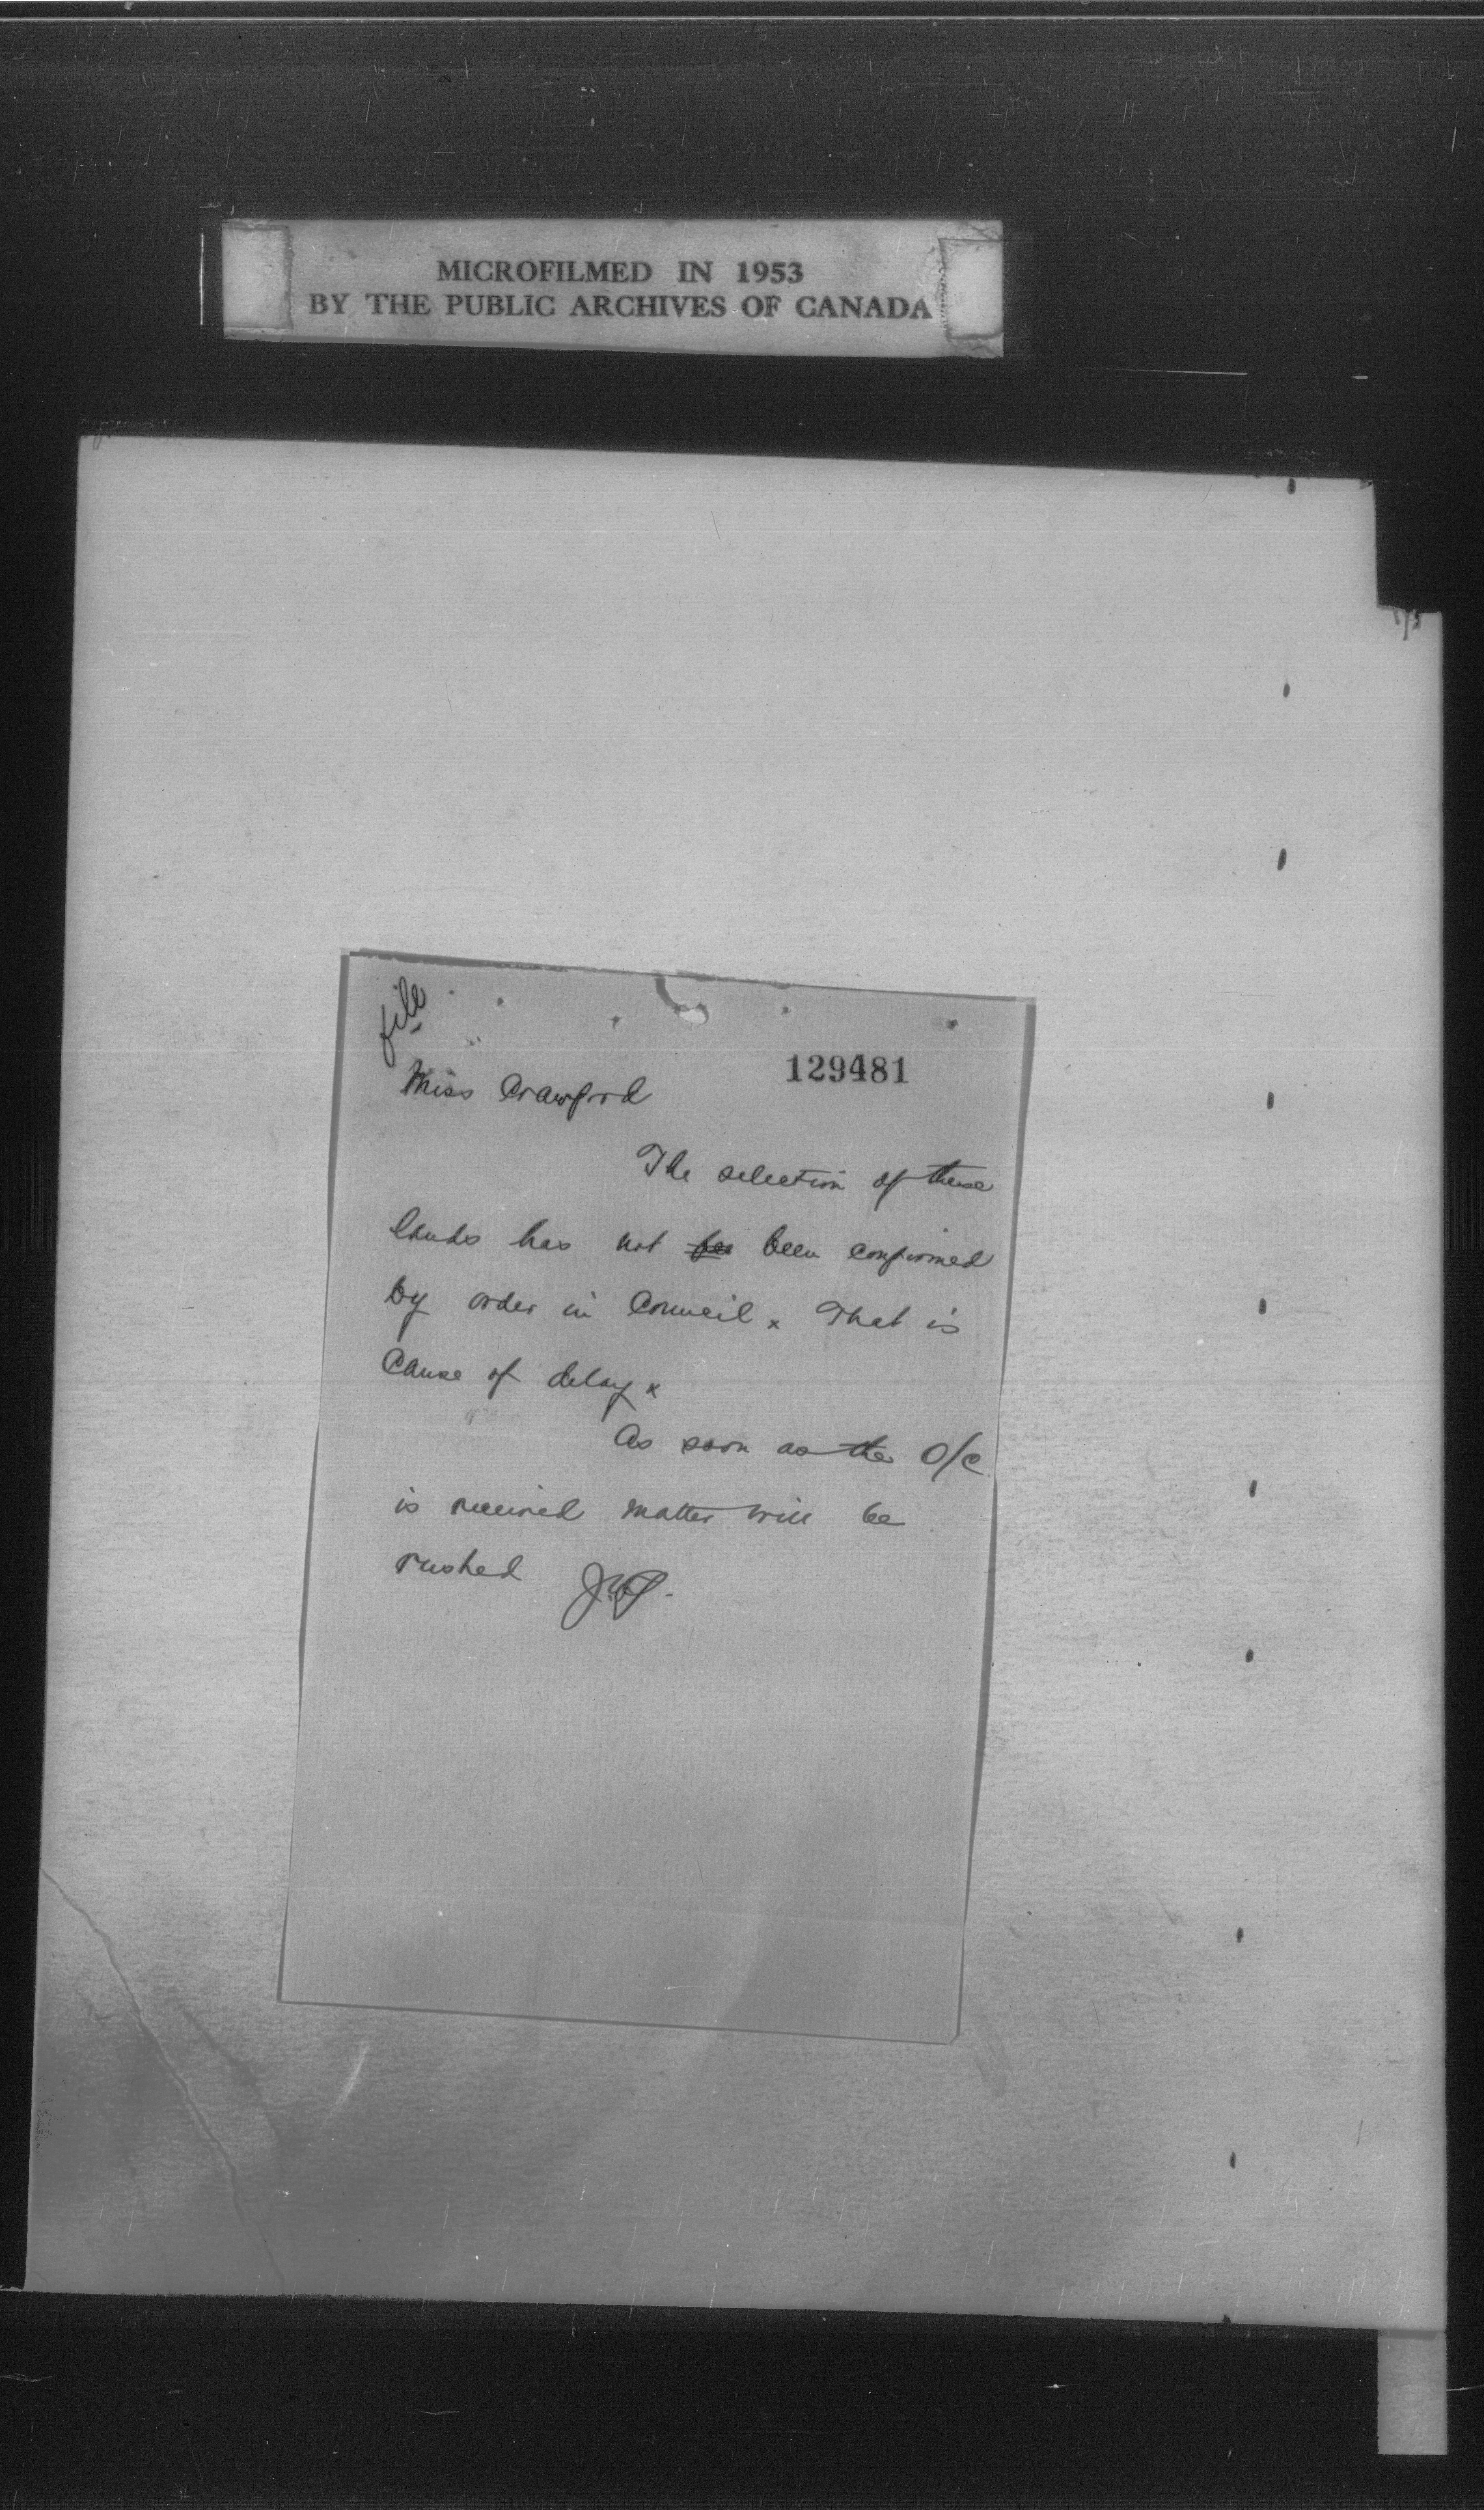 MICROFILMED IN 1953
BY THE PUBLIC ARCHIVES OF CANADA
file
129481
Miss Crawford
The selection of these
lands has not be been confirmed
by order in Council x That is
cause of delay x
As soon as the O/C
is received matter will be
rushed